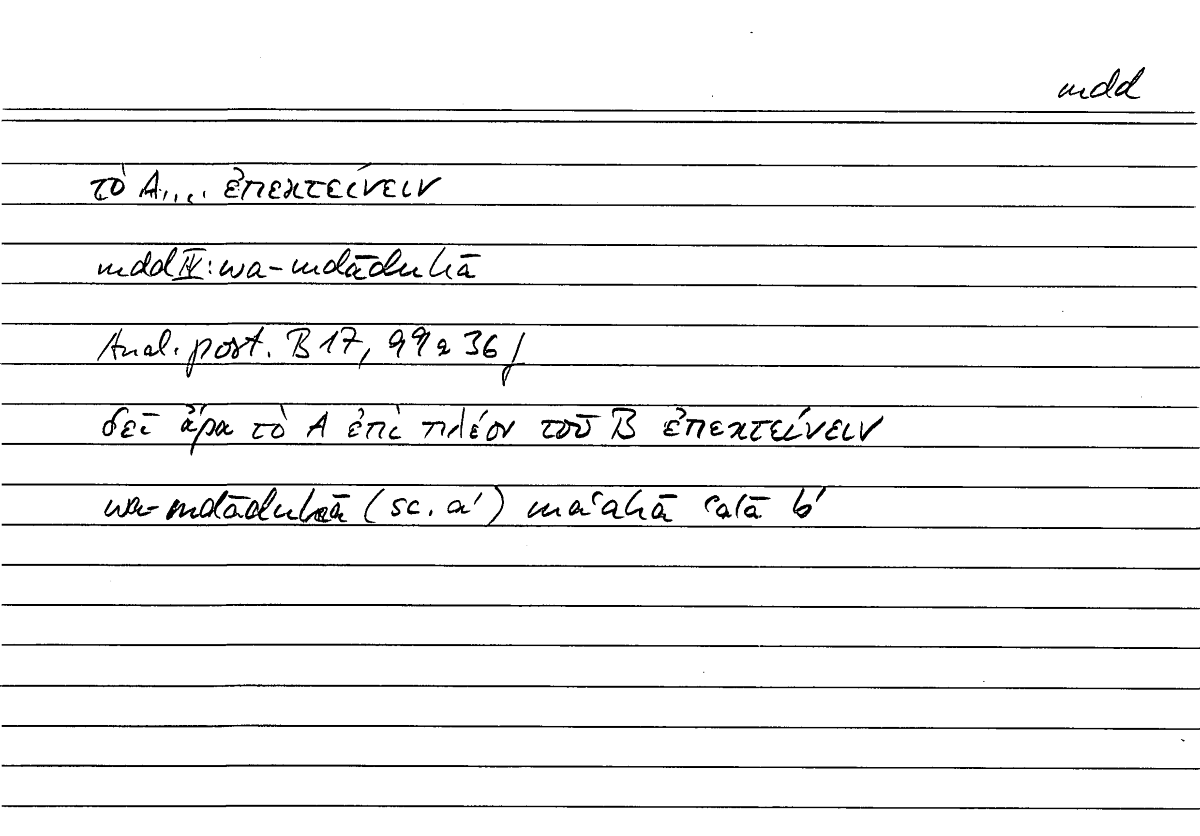 mdd
τὸ A.... ἐπεκτείνειν
mdd IV: wa-mdāduhā
Anal. post. B 17, 99a 36 /
δεῖ ἄρα τὸ A ἐπὶ πλέον τοῦ B ἐπεκτείνειν
wa-mdāduhā (sc. a') ʿalā b'